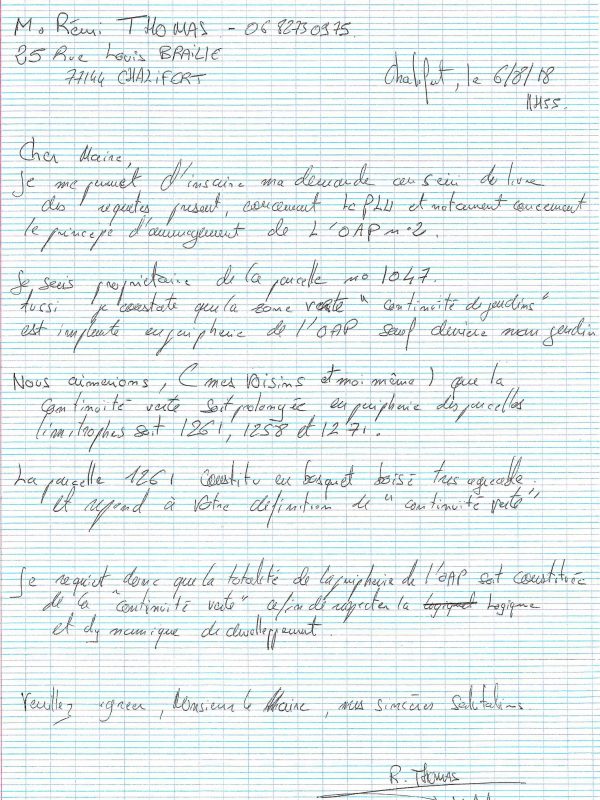 Mr Rémi THOMAS - 0682730975.
25 Rue Louis BRAILLE
77144 CHALIFERT
Chalifert, le 6/8/18
Cher Maire,
Je me permet d'inscrire ma demande au sein du livre
des requetes present, concernant le PLU et notament concernant
le principe d'amenagement de L'OAP n°2.
Je suis proprietaire de la parcelle no 1047.
Aussi je constate que la zone verte "continuité de jardins"
est implanté en peripherie de l'OAP sauf derriere mon jardin
Nous aimerions, (mes voisins et moi même) que la
continuité verte soit prolongée en peripherie des parcelles
limitrophes soit 1261, 1258 et 1271.
La parcelle 1261 constitu en bosquet boisé tres agreable.
et repond à votre définition de "continuité verte"
Je requiet donc que la totalité de la peripherie de l'OAP soit constituée
de la "continuité verte" afin de respecter la logique Logique
et dynamique de developpement.
Veuillez agreer, Monsieur le Maire, mes sincères salutations
R. THOMAS